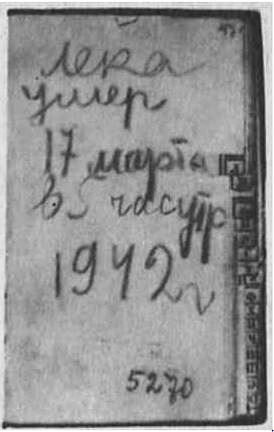 Лека
умер
17 марта
в 5 час утр
1942 г
5270